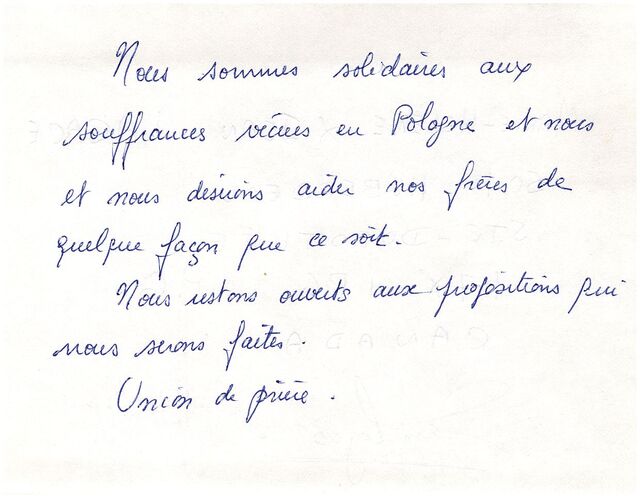 Nous sommes solidaires aux
souffrances vécues en Pologne et nous
et nous désirons aider nos frères de
quelque façon que ce soit.
Nous restons ouverts aux propositions qui
nous serons faites.
Union de prière.
CANADA